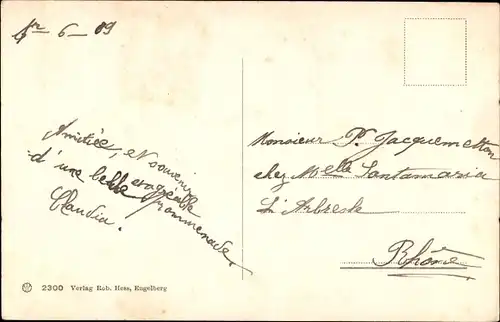 6 - 09
Amitiée, et souvenir
d'une belle
promenade.
Claudia.
Monsieur P. Jacquemetton
chez Melle Santamaria
L'Arbresle
Rhône
2300 Verlag Rob. Hess, Engelberg